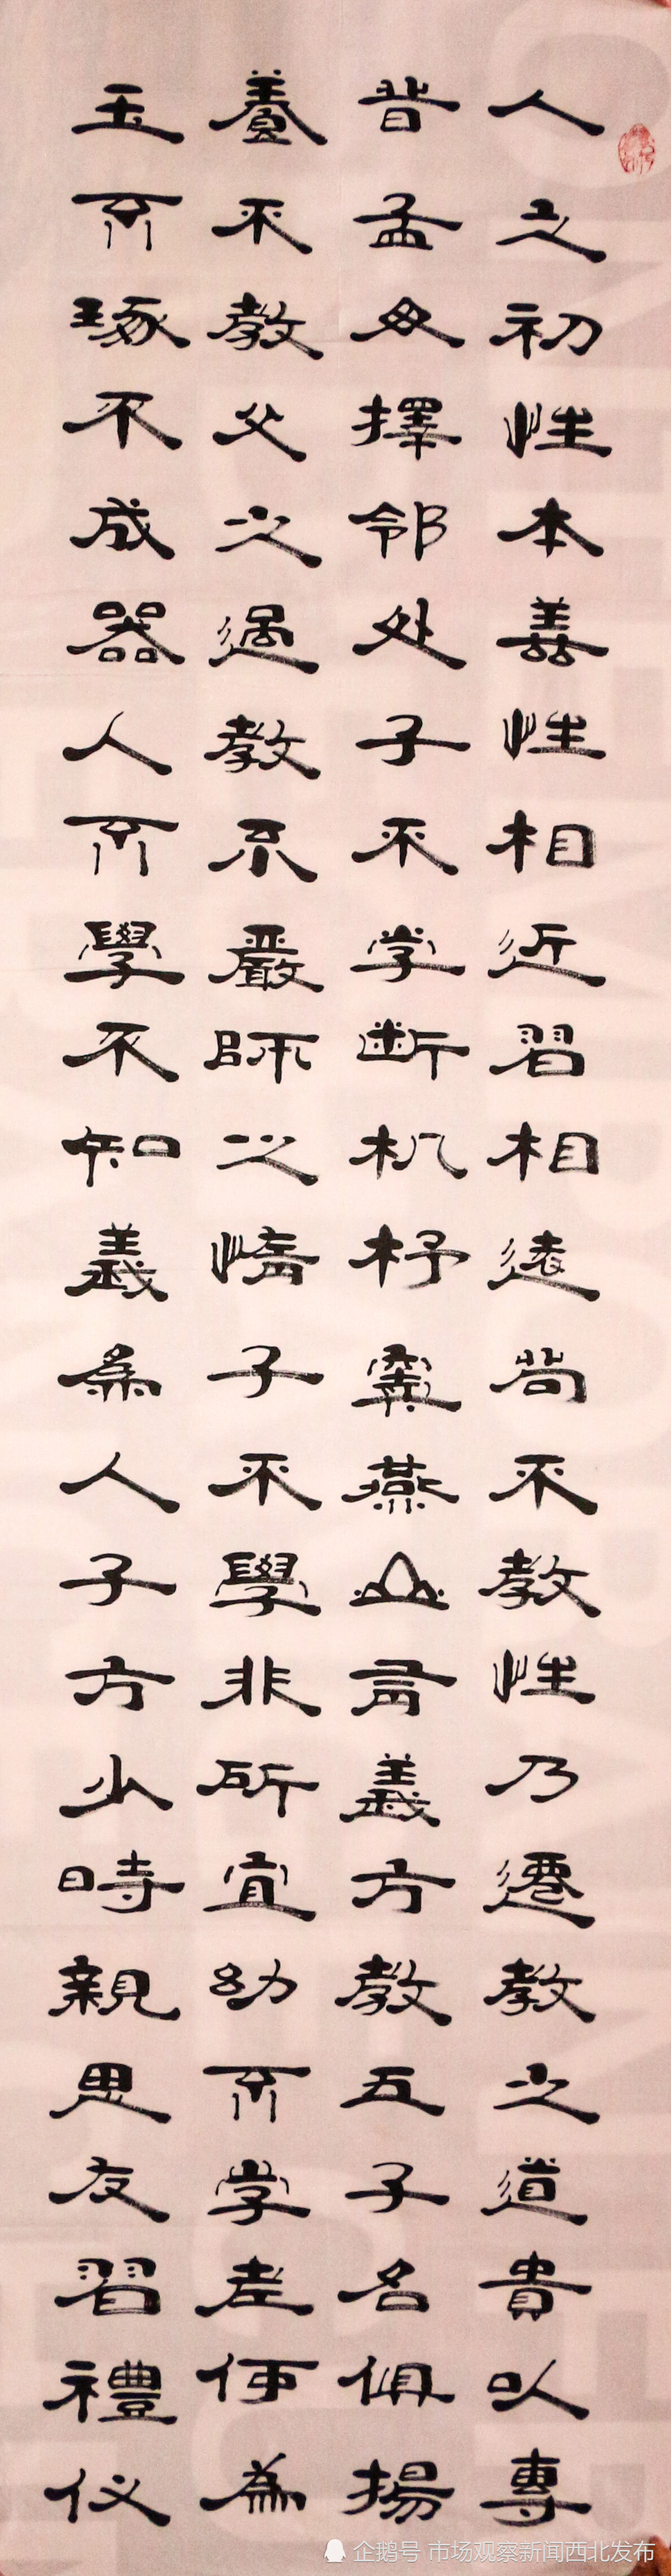 人之初性本善性相近習相遠苟不教性乃遷教之道貴以專
昔孟母擇邻处子不学断机杼窦燕山有義方教五子名俱揚
養不教父之過教不嚴師之惰子不學非所宜幼不学老何為
玉不琢不成器人不學不知義為人子方少時親思友習禮仪
企鹅号 市场观察新闻西北发布